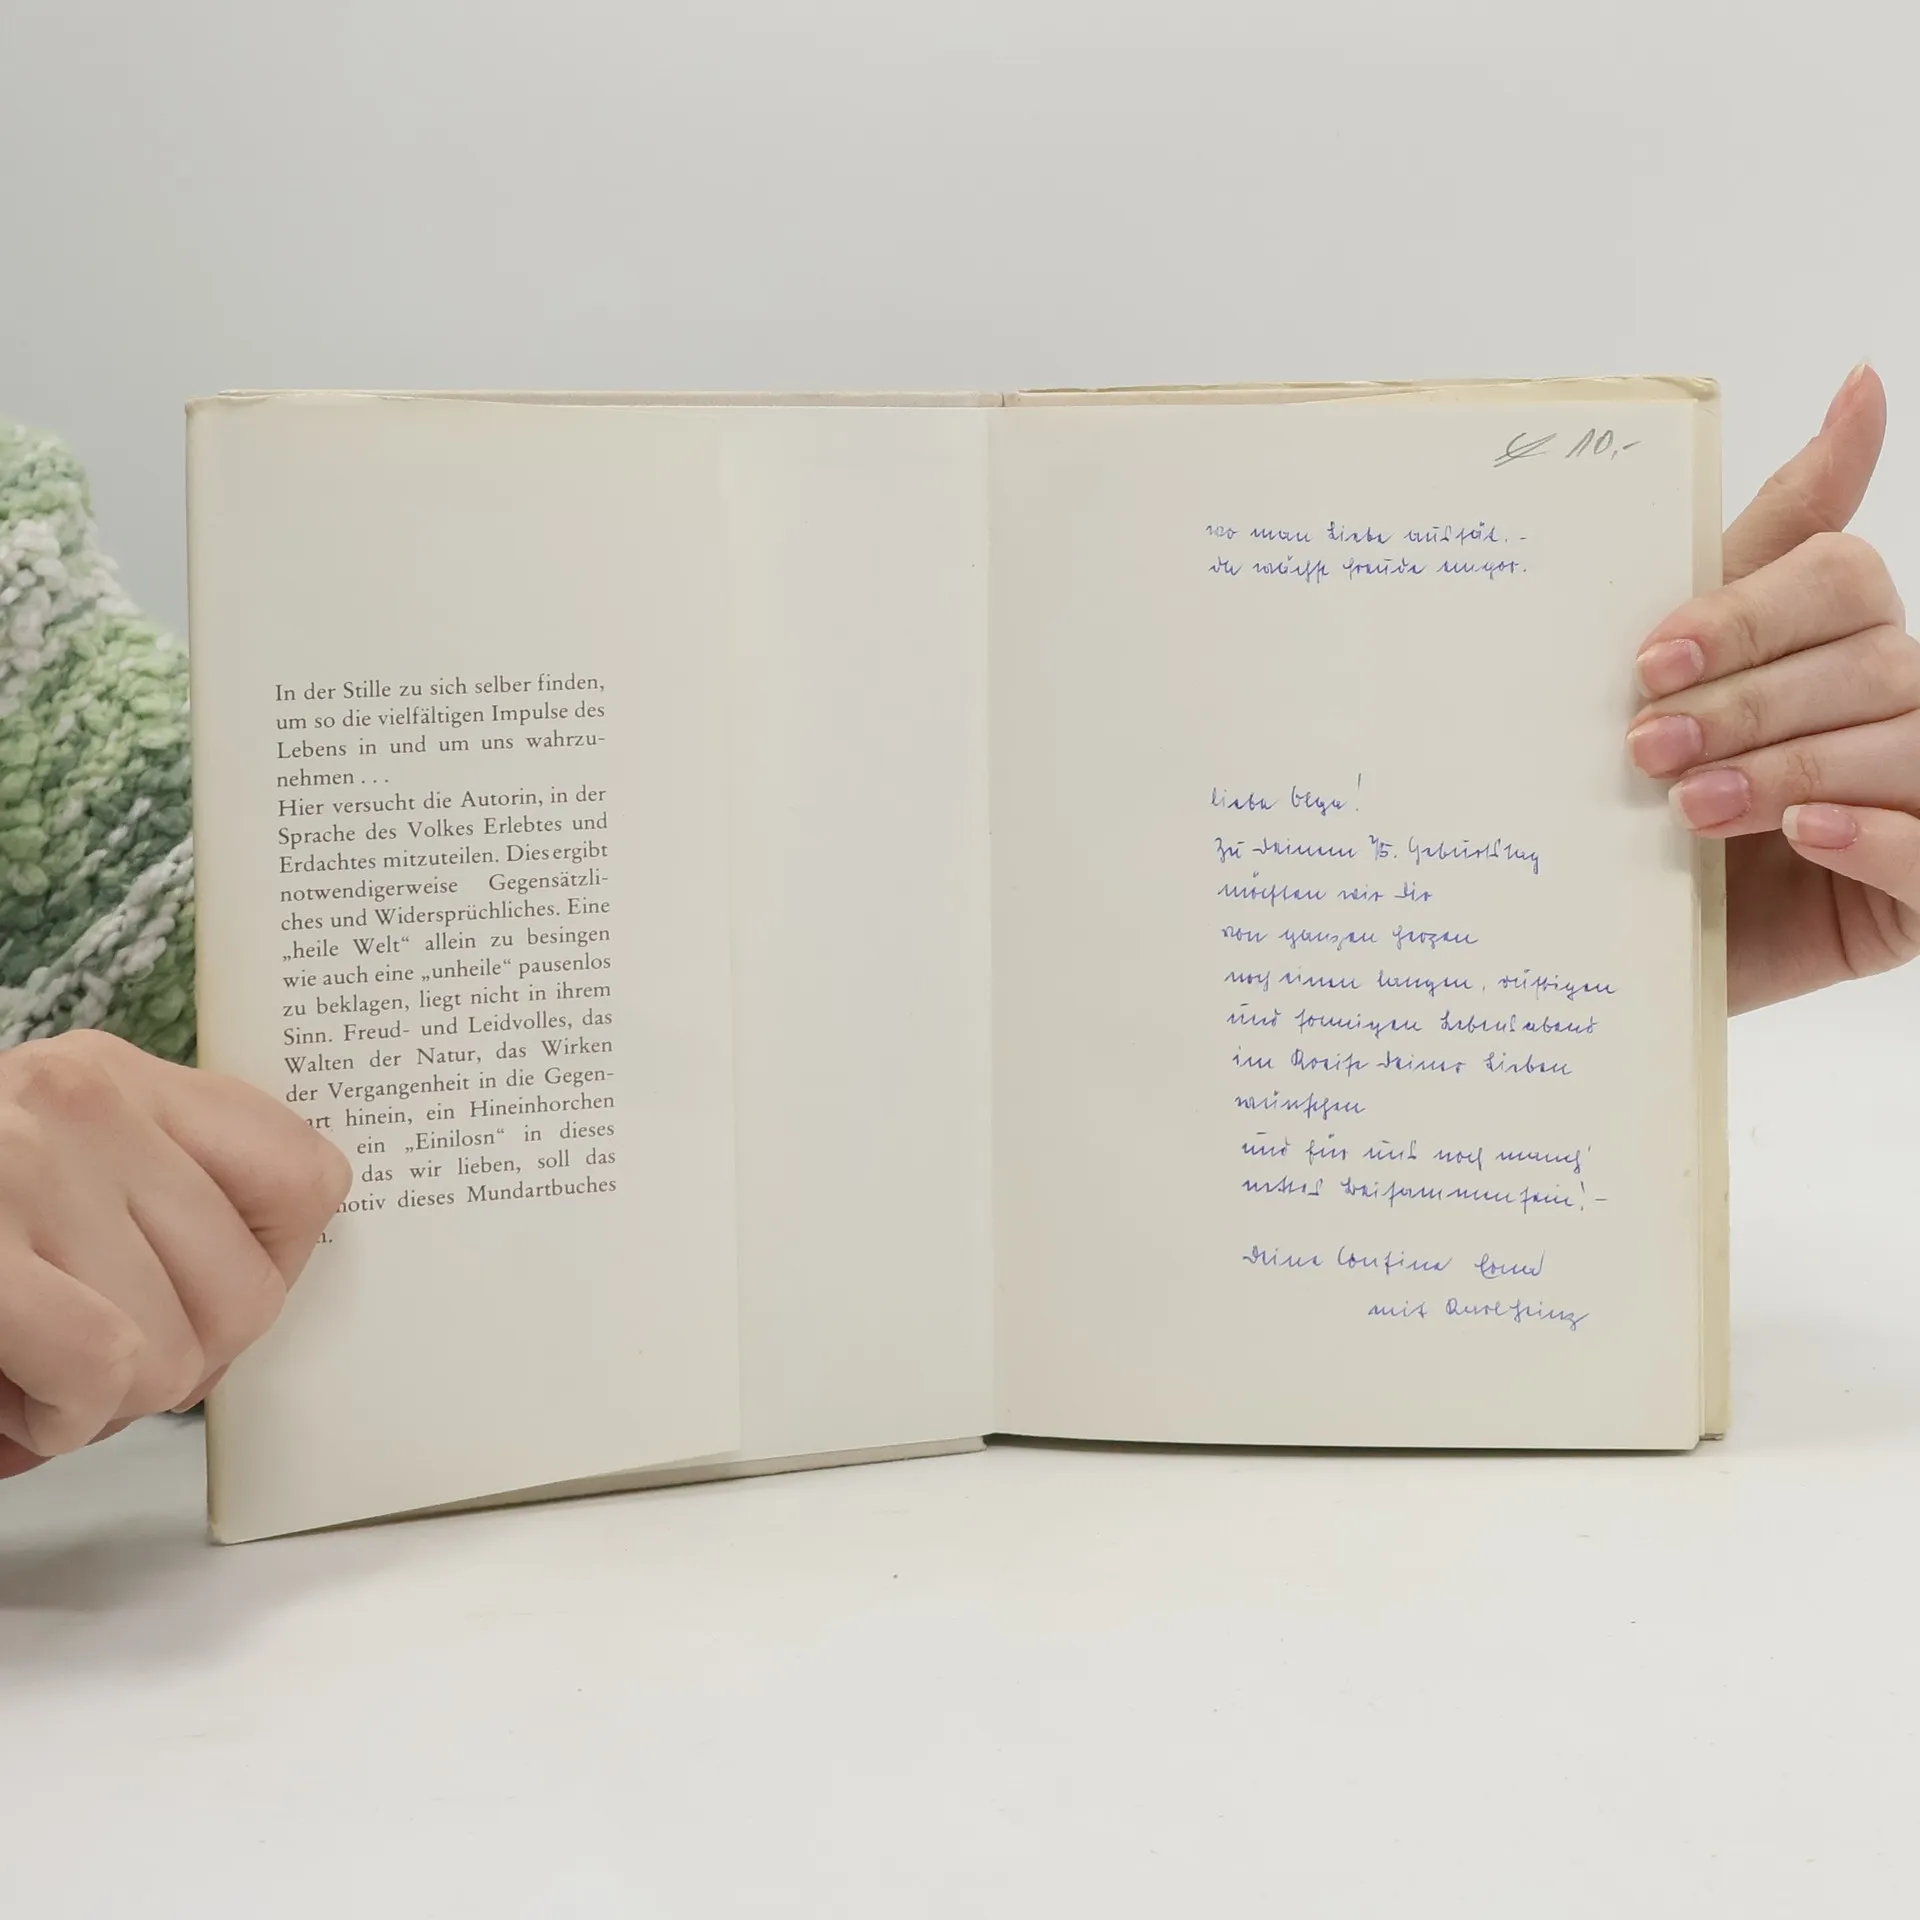 In der Stille zu sich selber finden,
um so die vielfältigen Impulse des
Lebens in und um uns wahrzu-
nehmen . . .
Hier versucht die Autorin, in der
Sprache des Volkes Erlebtes und
Erdachtes mitzuteilen. Dies ergibt
notwendigerweise Gegensätzli-
ches und Widersprüchliches. Eine
„heile Welt“ allein zu besingen
wie auch eine „unheile“ pausenlos
zu beklagen, liegt nicht in ihrem
Sinn. Freud- und Leidvolles, das
Walten der Natur, das Wirken
der Vergangenheit in die Gegen-
art hinein, ein Hineinhorchen
ein „Einilosn“ in dieses
das wir lieben, soll das
otiv dieses Mundartbuches
n.
10,-
wo man Liebe aussät. -
da wächst Freude empor.
Liebe Olga!
Zu Deinem 75. Geburtstag
möchten wir Dir
von ganzen Herzen
noch einen langen, rüstigen
und sonnigen Lebensabend
im Kreise Deiner Lieben
wünschen
und für uns noch manch'
nettes Beisammensein! -
Deine Cousine
mit Karlheinz